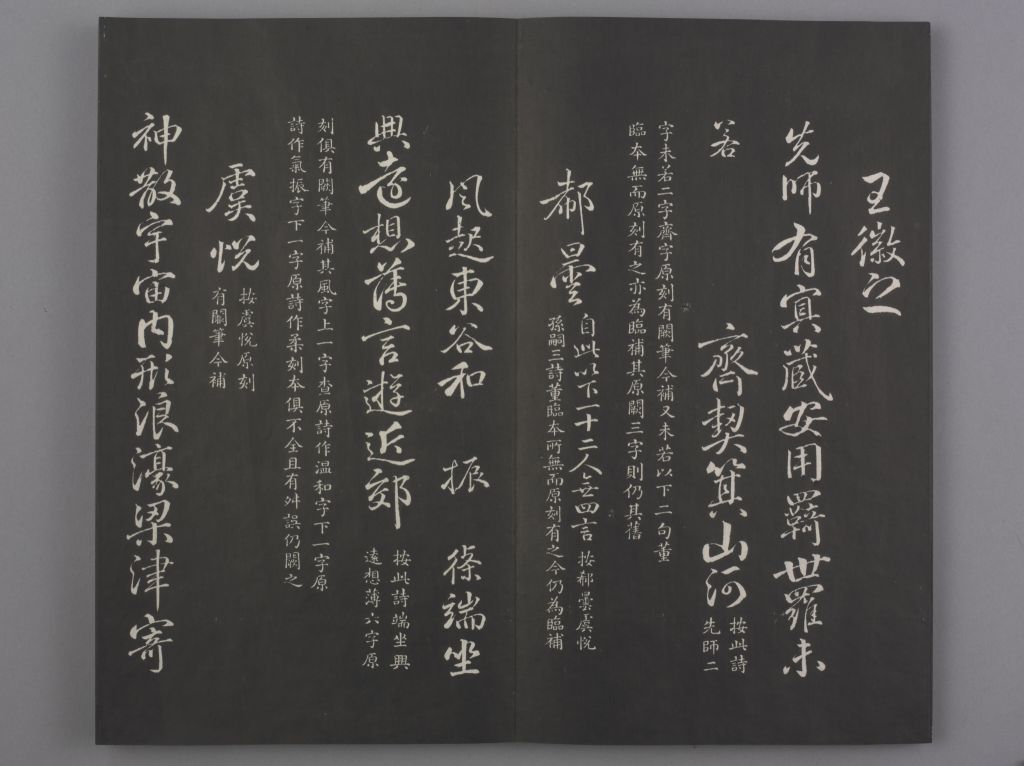 王徽之
先師有冥藏安用羈世羅未
若　　齊契箕山河
按此詩
先師二
字未若二字齊字原刻有闕筆今補又未若以下二句董
臨本無而原刻有之亦為臨補其原闕三字則仍其舊
郗曇
自此以下十二人無四言
按郗曇虞悅
孫嗣三詩董臨本所無而原刻有之今仍為臨補
風起東谷和　振　篠端坐
興遠想薄言遊近郊
按此詩端坐興
遠想薄六字原
刻俱有闕筆今補其風字上一字查原詩作溫和字下一字原
詩作氣振字下一字原詩作柔刻本俱不全且有舛誤仍闕之
虞悅
按虞悅原刻
有闕筆今補
神散宇宙內形浪濠梁津寄